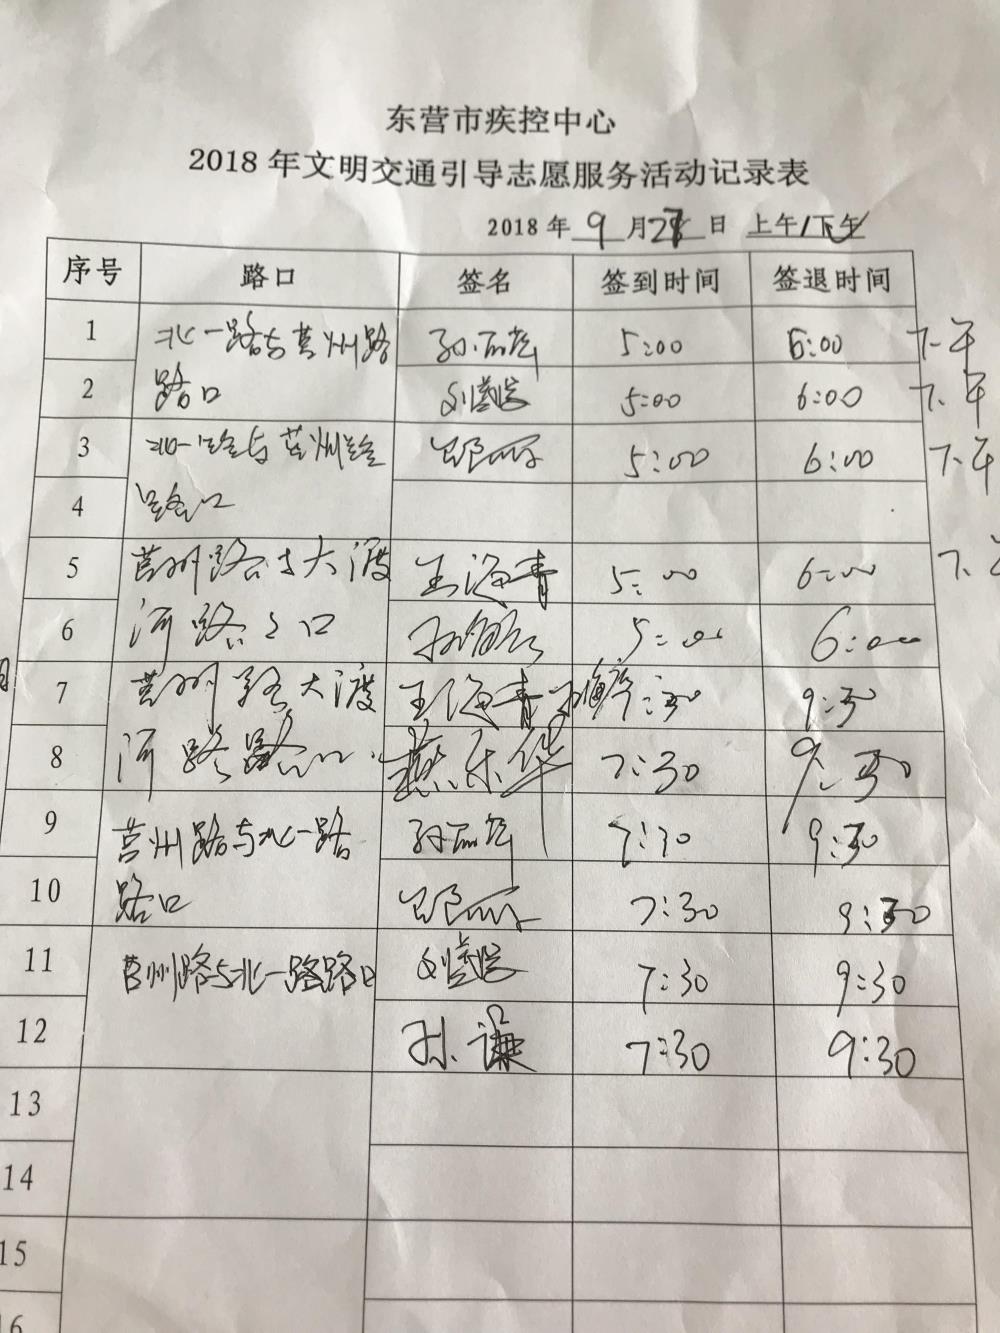 东营市疾控中心
2018年文明交通引导志愿服务活动记录表
2018年 9 月 日 上午/下午
序号 路口 签名 签到时间 签退时间
1 北一路与莒州路 5:00 6:00 下午
2 路口 5:00 6:00 下午
3 北一路与莒州路 5:00 6:00 下午
4 路口
5 莒州路与大渡 王海青 5:00 6:00 下午
6 河路路口 5:00 6:00
7 莒州路大渡 王海青 7:30 9:30
8 河路路口 燕乐华 7:30 9:30
9 莒州路与北一路 7:30 9:30
10 路口 7:30 9:30
11 莒州路与北一路路口 7:30 9:30
12 孙谦 7:30 9:30
13
14
15
16